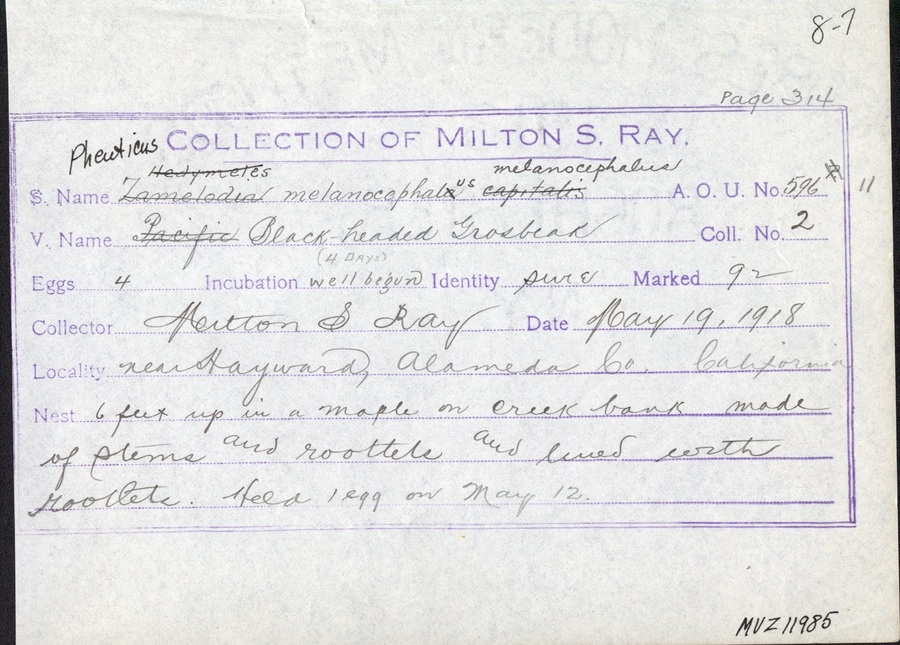 8-7
Page 314
Pheuticus COLLECTION OF MILTON S. RAY.
Hedymeles melanocephalus
S. Name Zamelodia melanocephalus capitalis A. O. U. No. 596 # 11
V. Name Pacific Black-headed Grosbeak Coll. No. 2
(4 DAYS)
Eggs 4 Incubation well begun Identity sure Marked 92
Collector Milton S Ray Date May 19, 1918
Locality near Hayward, Alameda Co. California
Nest 6 feet up in a maple on creek bank made
of stems and roottets and lined with
rootlets. Held 1 egg on May 12.
MVZ 11985